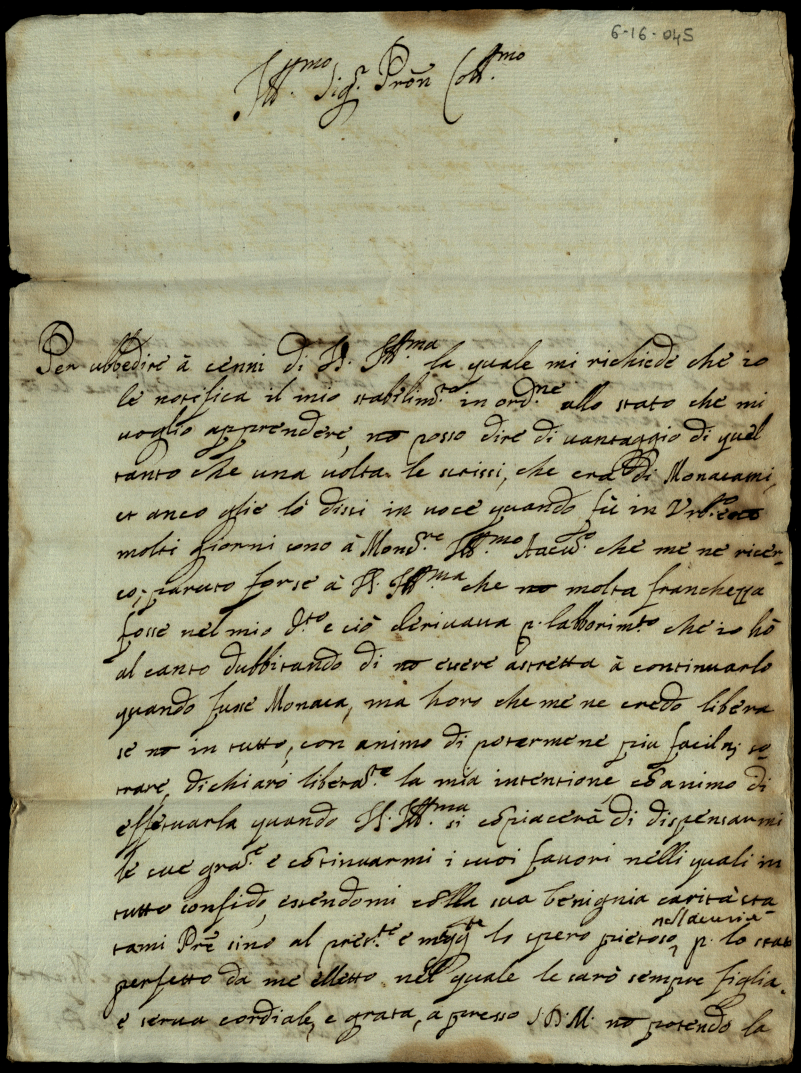 6-16-045
Ill.mo Sig.r Prõn Coll.mo
Per ubbedire à cenni di V. Ill.ma la quale mi richiede che io
le notifica il mio stabilim.to in ord.ne allo stato che mi
voglio apprendere, nõ posso dire di vantaggio di quel
tanto che una volta le scrissi, che era di Monacami,
et anco glie lò dissi in voce quando fù in Urb.o
molti giorni sono à Mons.re Ill.mo che me ne ricer-
cò; paruto forse à V. Ill.ma che nõ molta franchezza
fosse nel mio d.to e ciò derivava p. l'abborim.to che io hò
al canto dubbitando di nõ essere astretta à continuarlo
quando fusse Monaca, ma hora che me ne credo libera
se nõ in tutto, con animo di potermene piu facilm. so-
trare, dichiarò libera.te la mia intentione cõ animo di
effetuarla quando V. Ill.ma si cõpiacerà di dispensarmi
le sue gra.e e cõtinuarmi i suoi favori nelli quali in
tutto confido, essendomi colla sua benignia carità sta
tami Prẽ sino al pres.te e lo spero pietoso, p. lo stato
perfetto da me elletto nel quale le sarò sempre figlia
e serva cordiale, e grata, apresso S.D.M. nõ potendo la